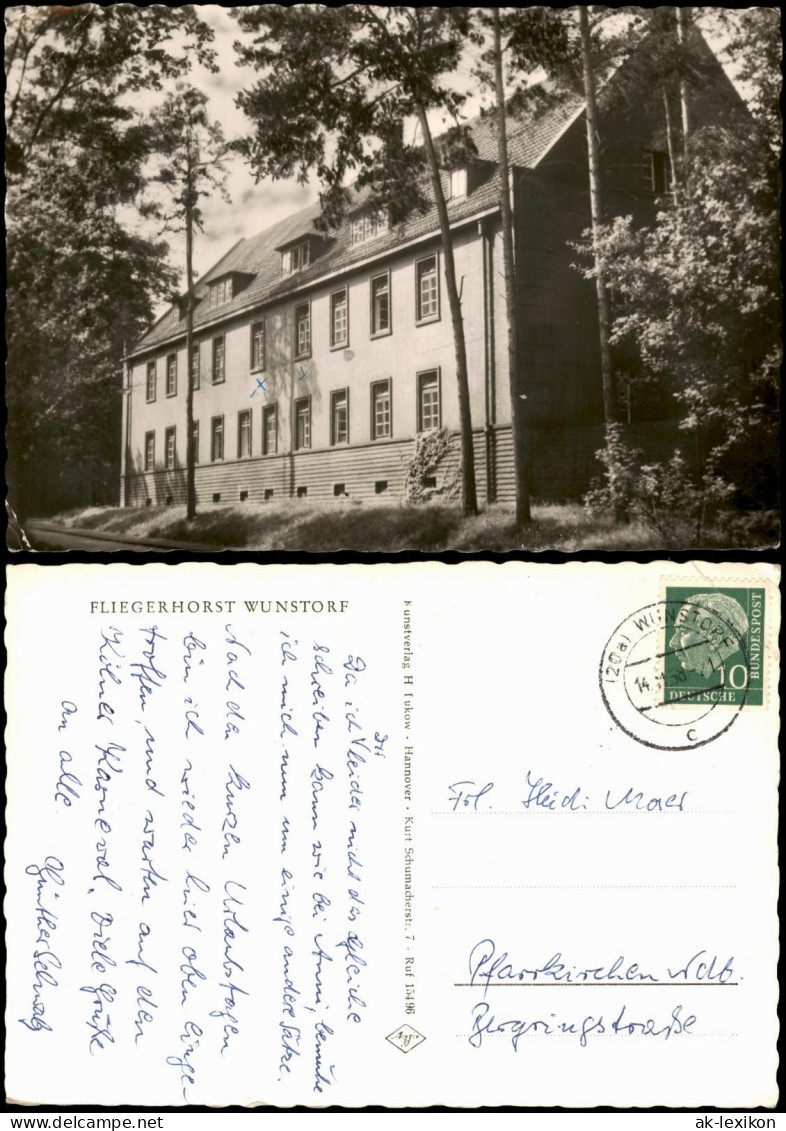 FLIEGERHORST WUNSTORF
Da ich Dir leider nicht das gleiche
schreiben kann wie bei Anni, bemühe
ich mich nun um einige andere Sätze.
Nach den kurzen Urlaubstagen
bin ich wieder hier oben einge-
troffen, und warten auf den
Kölner Karneval. Viele Grüße
an alle.
Günther
Kunstverlag H. Lukow · Hannover · Kurt Schumacherstr. 7 · Ruf 15496
Agfa
(20a) WUNSTORF
c
10
DEUTSCHE BUNDESPOST
Frl. Heidi Maier
Pfarrkirchen Ndb.
Bergringstraße
ak-lexikon